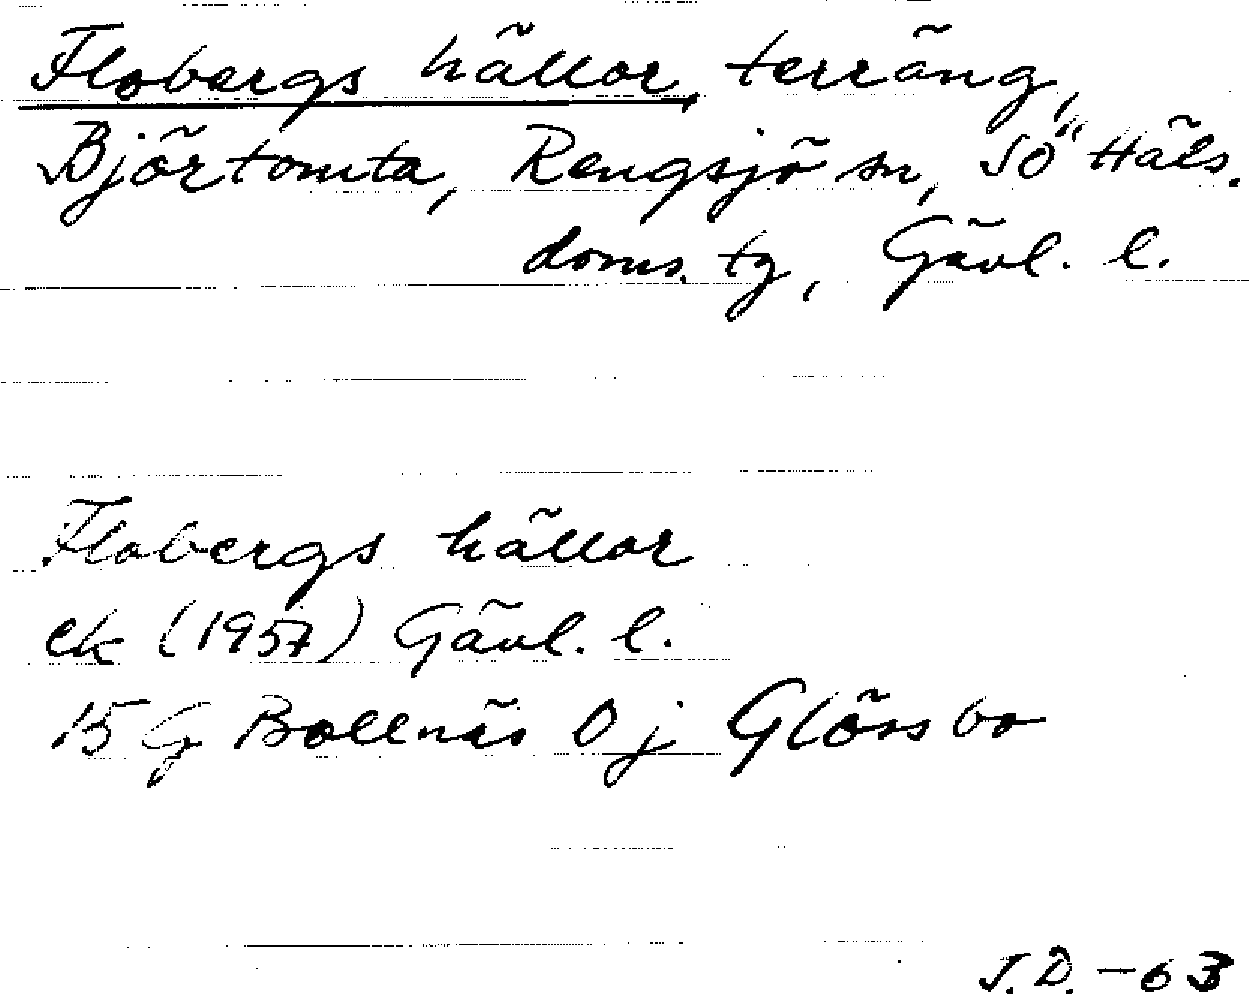 Flobergs hällor, terräng,
Björtomta, Rengsjö sn, SÖ Häls.
doms. tg, Gävl. l.
Flobergs hällor
ek (1957) Gävl. l.
15 G Bollnäs 0 j Glössbo
J.D. - 63